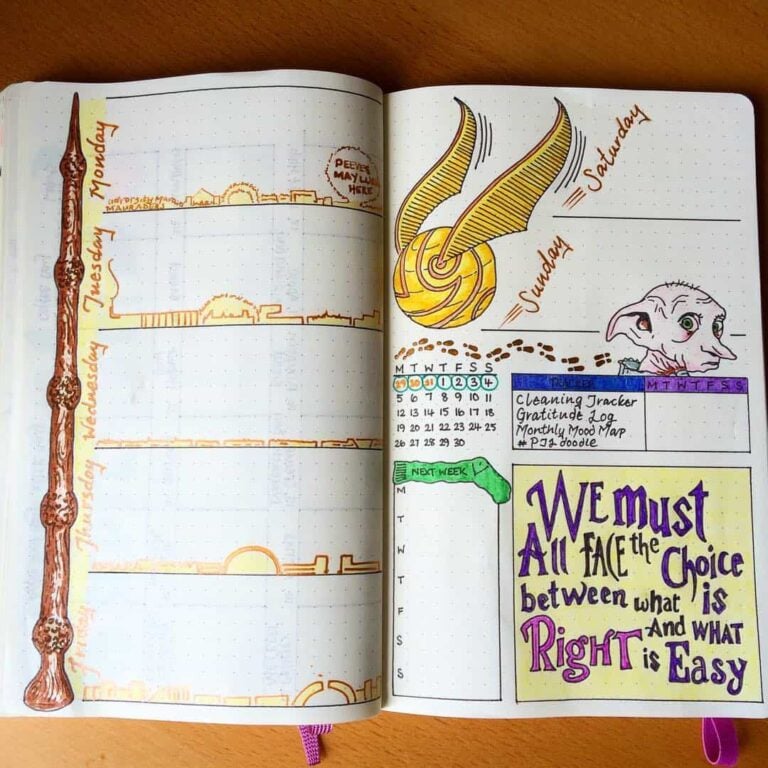 Monday
PEEVES
MAY LURK
HERE
Tuesday
Wednesday
Thursday
Friday
Saturday
Sunday
M T W T F S S
29 30 31 1 2 3 4
5 6 7 8 9 10 11
12 13 14 15 16 17 18
19 20 21 22 23 24 25
26 27 28 29 30
TRACKER M T W T F S S
Cleaning Tracker
Gratitude Log
Monthly Mood Map
NEXT WEEK
M
T
W
T
F
S
S
WE must
All FACE the Choice
between what is
RIGHT And WHAT
is Easy